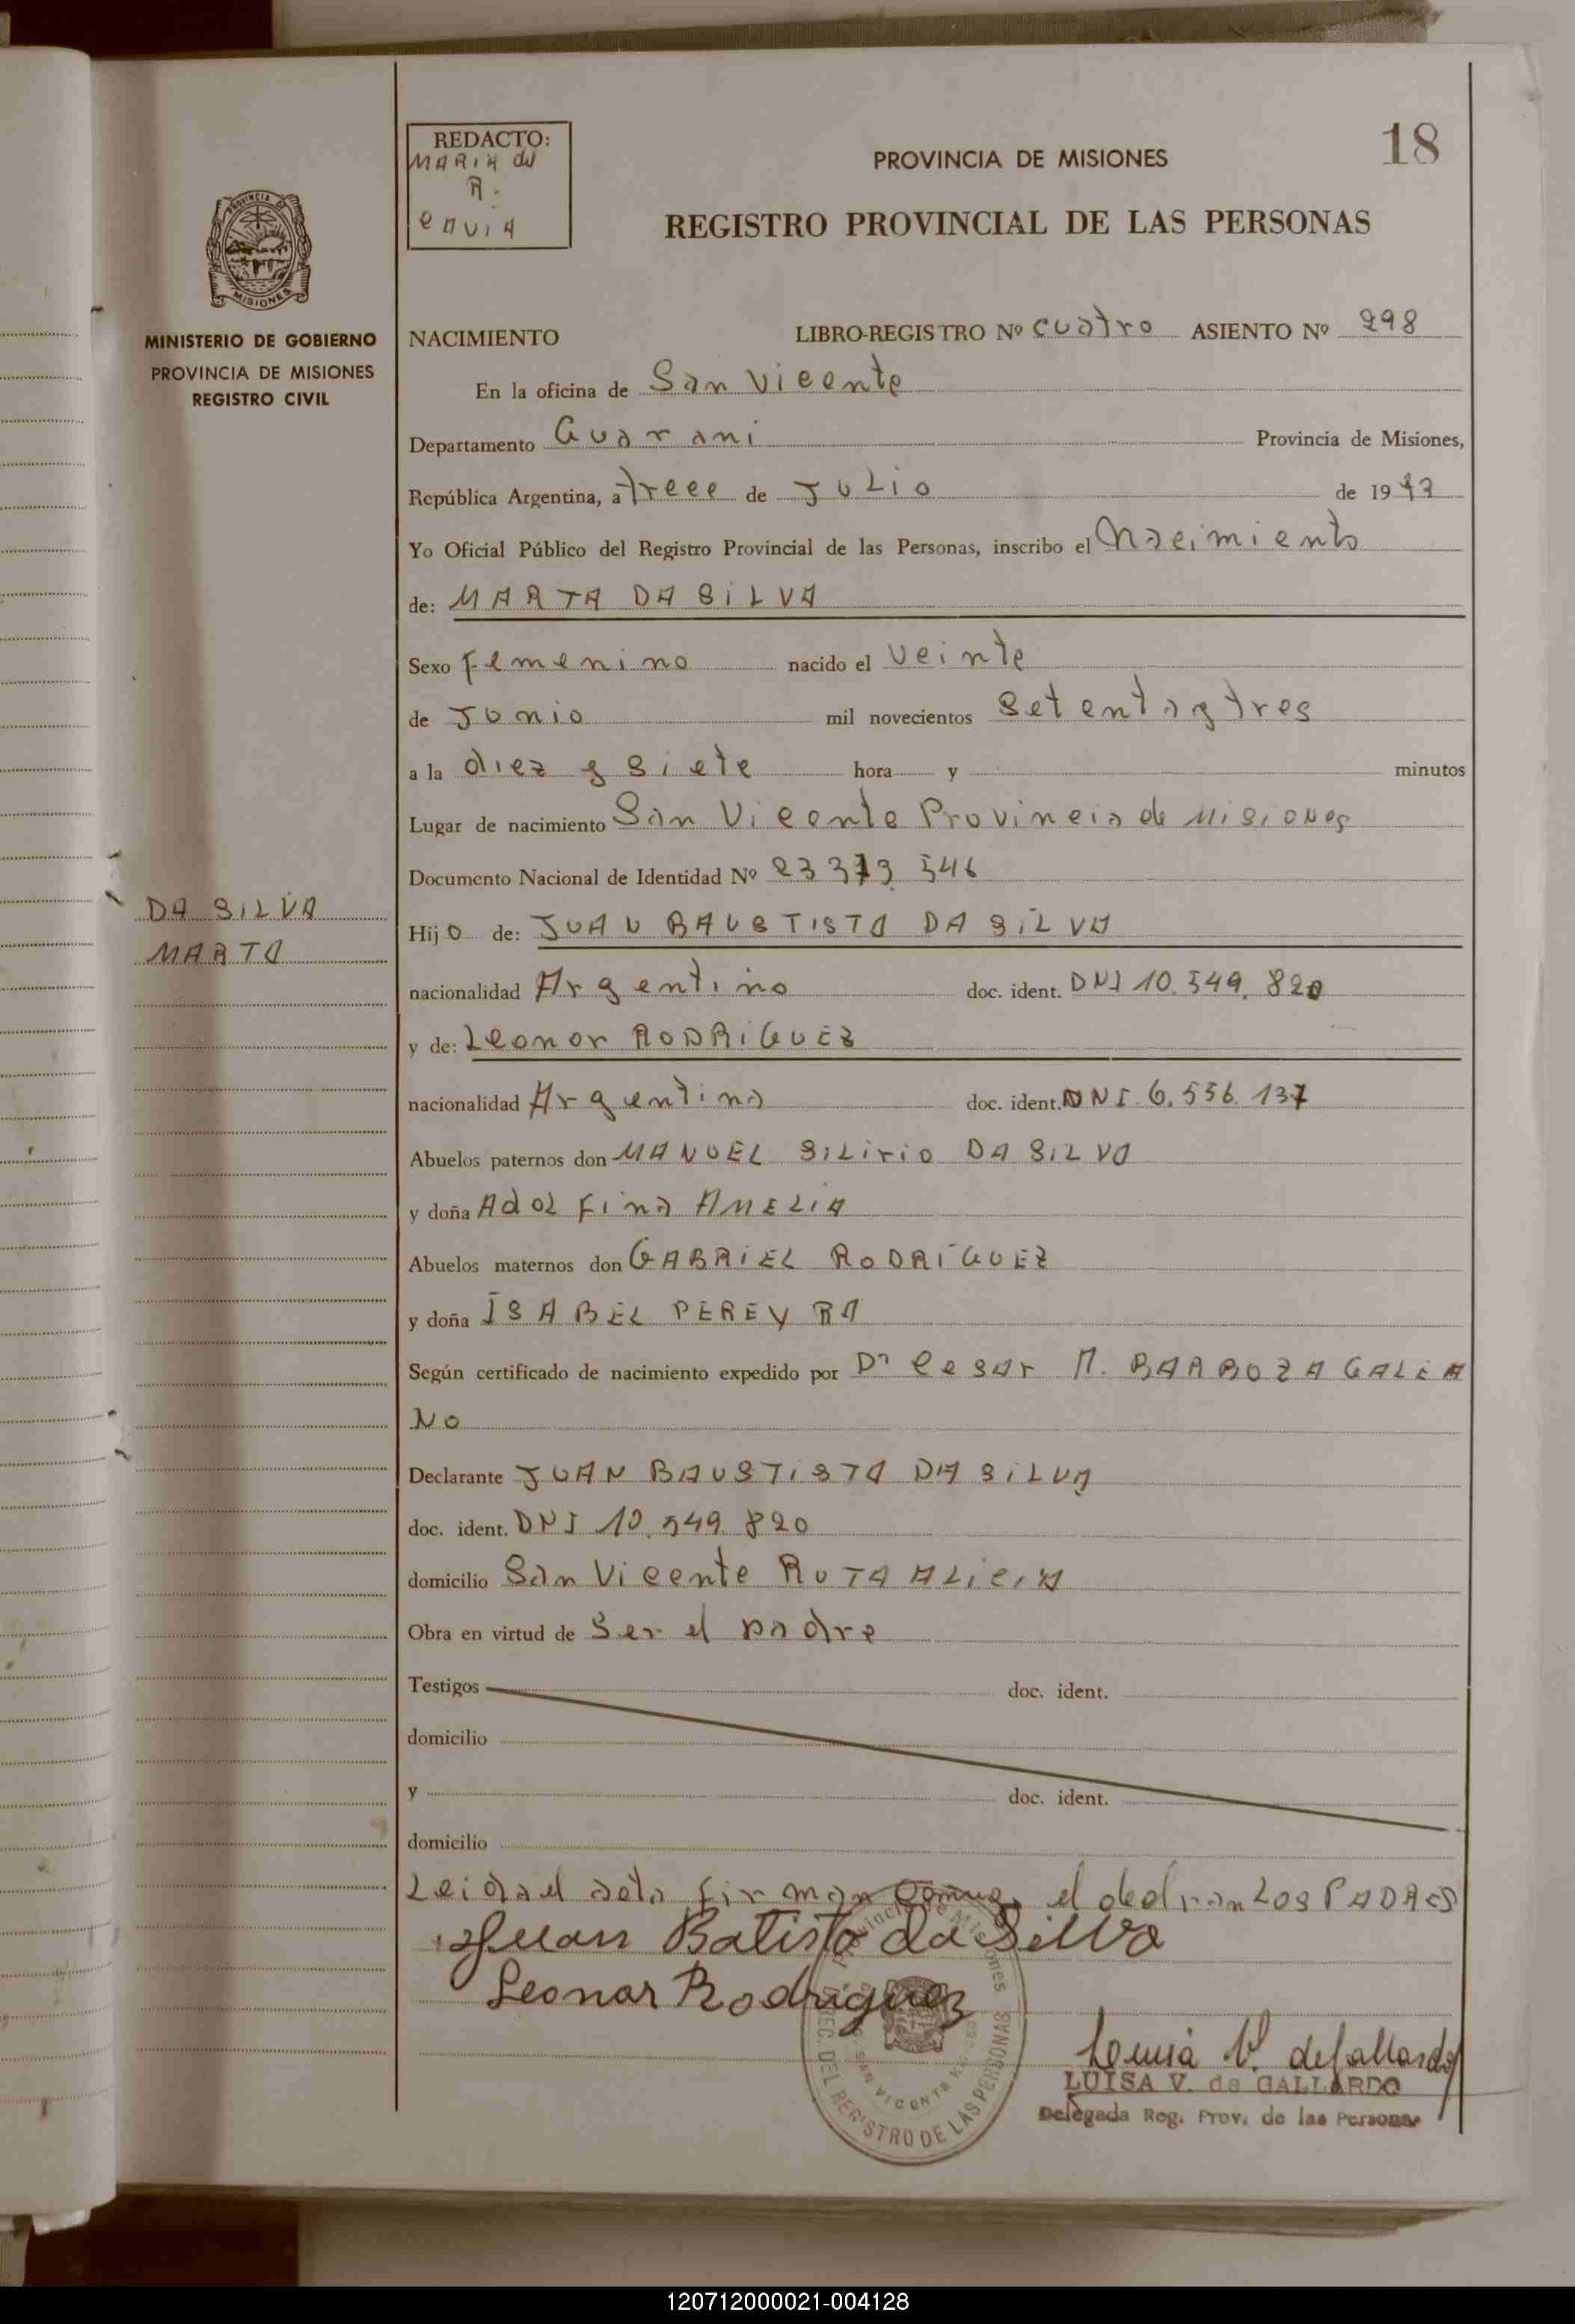 18
REDACTO:
MARIA del
R.
PROVINCIA DE MISIONES
REGISTRO PROVINCIAL DE LAS PERSONAS
PROVINCIA DE
MISIONES
MINISTERIO DE GOBIERNO
PROVINCIA DE MISIONES
REGISTRO CIVIL
NACIMIENTO LIBRO-REGISTRO Nº cuatro ASIENTO Nº 298
En la oficina de San Vicente
Departamento Guarani Provincia de Misiones,
República Argentina, a trece de JULio de 1973
Yo Oficial Público del Registro Provincial de las Personas, inscribo el Nacimiento
de: MARTA DA SiLVA
Sexo femenino nacido el Veinte
de Junio mil novecientos setenta y tres
a la diez y siete hora y minutos
Lugar de nacimiento San Vicente Provincia de MisioNes
Documento Nacional de Identidad Nº 23 373 546
DA SILVA
MARTA
Hijo de: JUAN BAUSTISTA DA SiLVA
nacionalidad Argentino doc. ident. DNI 10.549.820
y de: Leonor RODRiGUEZ
nacionalidad Argentina doc. ident. DNI. 6.556.137
Abuelos paternos don MANUEL SiLirio DA SiLVA
y doña Adolfina AMELIA
Abuelos maternos don GABRiEL RODRÍGUEZ
y doña ISABEL PEREYRA
Según certificado de nacimiento expedido por Dr Cesar A. BARBOZA GALEA
No
Declarante JUAN BAUSTISTA DA SiLVA
doc. ident. DNI 10.549.820
domicilio San Vicente RUTA ALiCIA
Obra en virtud de Ser el padre
Testigos doc. ident.
domicilio
y doc. ident.
domicilio
Leida el acta firman el Los PADRES
Juan Batista da Silva
Leonor Rodriguez
Provincia de Misiones
DEL REGISTRO DE LAS PERSONAS
SAN VICENTE
Luisa V. de Gallardo
LUISA V. de GALLARDO
Delegada Reg. Prov. de las Personas
120712000021-004128